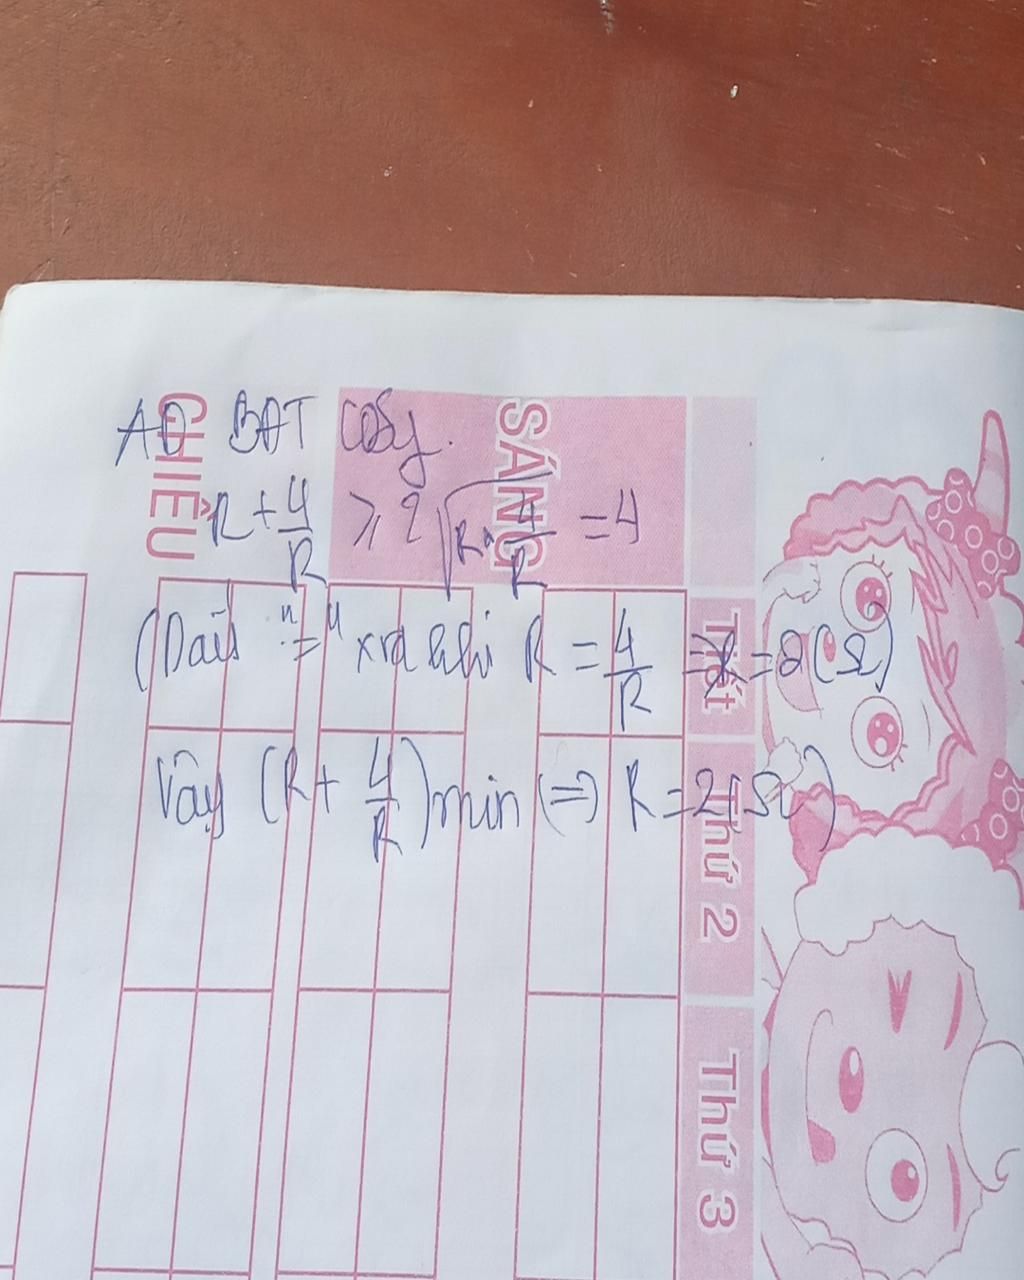 AD BĐT Cosy.
R + 4/R ≥ 2√(R.4/R) = 4
(Dấu "=" xra khi R = 4/R => R = 2(Ω)
Vậy (R + 4/R)min (=) R = 2(Ω)
CHIỀU
SÁNG
Tiết
Thứ 2
Thứ 3